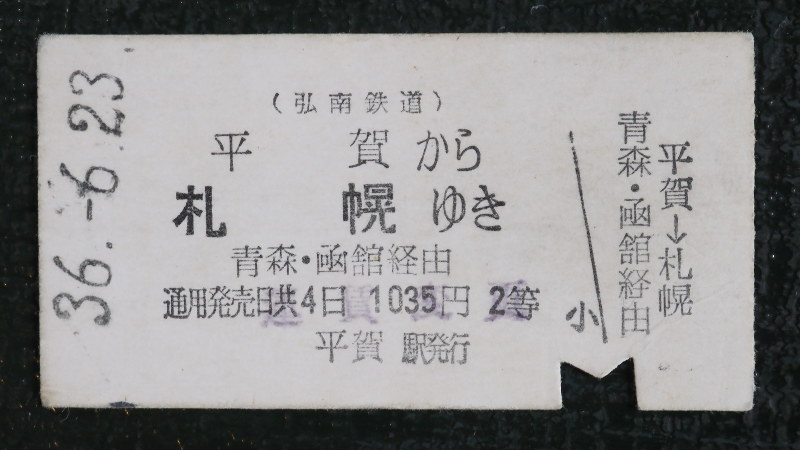 36.-6.23
(弘南鉄道)
平 賀から
札 幌ゆき
青森・函館経由
通用発売日共4日 1035円 2等
平賀 駅発行
小
平賀→札幌
青森・函館経由